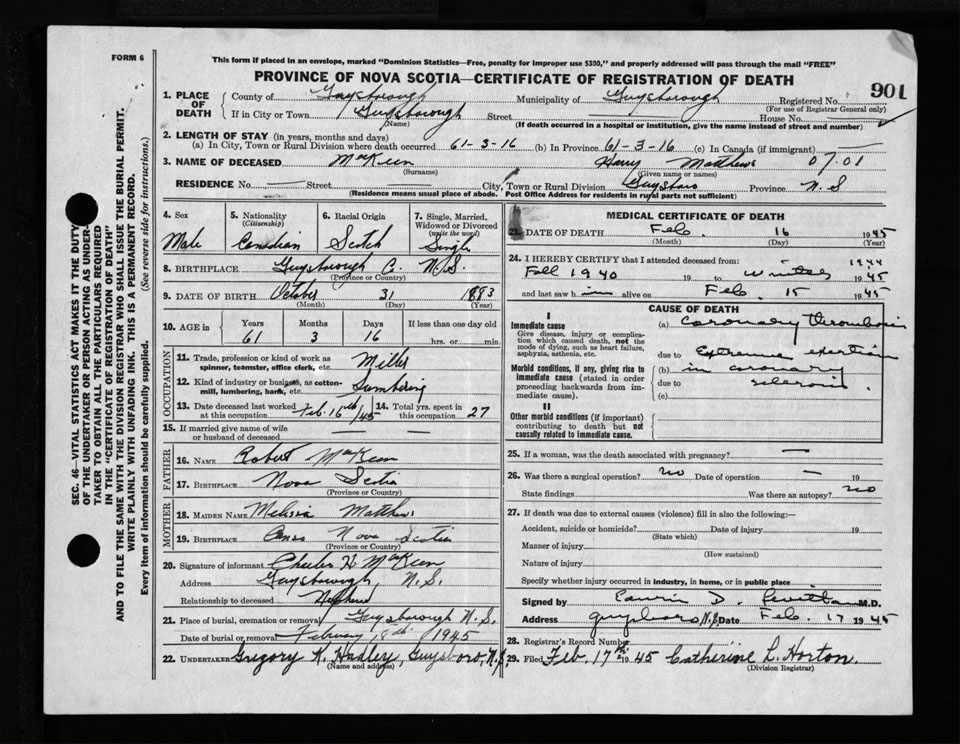 FORM 6
This form if placed in an envelope, marked "Dominion Statistics—Free, penalty for improper use $300," and properly addressed will pass through the mail "FREE"
PROVINCE OF NOVA SCOTIA—CERTIFICATE OF REGISTRATION OF DEATH
901
1. PLACE OF DEATH County of Guysborough Municipality of Guysborough Registered No.
(For use of Registrar General only)
If in City or Town Guysborough Street House No.
(Name) (If death occurred in a hospital or institution, give the name instead of street and number)
2. LENGTH OF STAY (in years, months and days)
(a) In City, Town or Rural Division where death occurred 61-3-16 (b) In Province 61-3-16 (c) In Canada (if immigrant)
3. NAME OF DECEASED MacKeen Harry Matthews 07.01
(Surname) (Given name or names)
RESIDENCE No. — Street City, Town or Rural Division Guysboro Province N.S
(Residence means usual place of abode. Post Office Address for residents in rural parts not sufficient)
4. Sex 5. Nationality (Citizenship) 6. Racial Origin 7. Single, Married, Widowed or Divorced (write the word)
Male Canadian Scotch Single
8. BIRTHPLACE Guysborough C. N.S.
(Province or Country)
9. DATE OF BIRTH October 31 1883
(Month) (Day) (Year)
10. AGE in Years Months Days If less than one day old
61 3 16 hrs. or min.
OCCUPATION
11. Trade, profession or kind of work as spinner, teamster, office clerk, etc. Miller
12. Kind of industry or business, as cotton-mill, lumbering, bank, etc. Lumbering
13. Date deceased last worked at this occupation Feb. 16th/45 14. Total yrs. spent in this occupation 27
15. If married give name of wife or husband of deceased — —
FATHER
16. NAME Robert MacKeen
17. BIRTHPLACE Nova Scotia
(Province or Country)
MOTHER
18. MAIDEN NAME Melissa Matthews
19. BIRTHPLACE Canso Nova Scotia
(Province or Country)
20. Signature of informant Charles H. MacKeen
Address Guysborough, N.S.
Relationship to deceased Nephew
21. Place of burial, cremation or removal Guysborough N.S.
Date of burial or removal February 18th 1945
22. UNDERTAKER Gregory K. Hadley, Guysboro N.S.
(Name and address)
MEDICAL CERTIFICATE OF DEATH
23. DATE OF DEATH Feb. 16 1945
(Month) (Day) (Year)
24. I HEREBY CERTIFY that I attended deceased from: — 1944
Fall 1940 19 to winter 1945
and last saw him alive on Feb. 15 1945
CAUSE OF DEATH
I
Immediate cause
Give disease, injury or complication which caused death, not the mode of dying, such as heart failure, asphyxia, asthenia, etc.
(a) Coronary thrombosis
due to Extreme exertion
Morbid conditions, if any, giving rise to immediate cause (stated in order proceeding backwards from immediate cause).
(b) in coronary
due to sclerosis.
(c)
II
Other morbid conditions (if important) contributing to death but not causally related to immediate cause.
25. If a woman, was the death associated with pregnancy? —
26. Was there a surgical operation? no Date of operation — 19
State findings Was there an autopsy? no
27. If death was due to external causes (violence) fill in also the following:—
Accident, suicide or homicide? Date of injury 19
(State which)
Manner of injury
(How sustained)
Nature of injury
Specify whether injury occurred in industry, in home, or in public place
Signed by D. M.D.
Address Guysboro N.S. Date Feb. 17 1945
28. Registrar's Record Number
29. Filed Feb. 17th 1945 Catherine L. Horton.
(Division Registrar)
SEC. 46—VITAL STATISTICS ACT MAKES IT THE DUTY
OF THE UNDERTAKER OR PERSON ACTING AS UNDER-
TAKER TO OBTAIN ALL THE PARTICULARS REQUIRED
IN THE "CERTIFICATE OF REGISTRATION OF DEATH"
AND TO FILE THE SAME WITH THE DIVISION REGISTRAR WHO SHALL ISSUE THE BURIAL PERMIT.
WRITE PLAINLY WITH UNFADING INK. THIS IS A PERMANENT RECORD.
Every item of information should be carefully supplied. (See reverse side for instructions.)